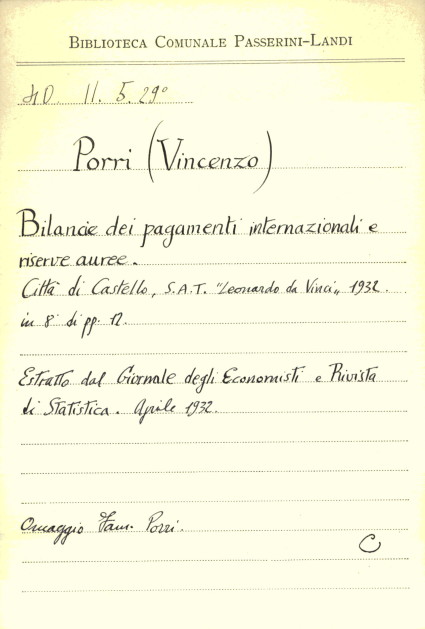 BIBLIOTECA COMUNALE PASSERINI-LANDI
4D. II. 5. 29º
Porri (Vincenzo)
Bilancie dei pagamenti internazionali e
riserve auree.
Città di Castello, S.A.T. "Leonardo da Vinci„ 1932.
in 8º di pp. 12.
Estratto dal Giornale degli Economisti e Rivista
di Statistica. Aprile 1932.
Omaggio Fam. Porri.
C